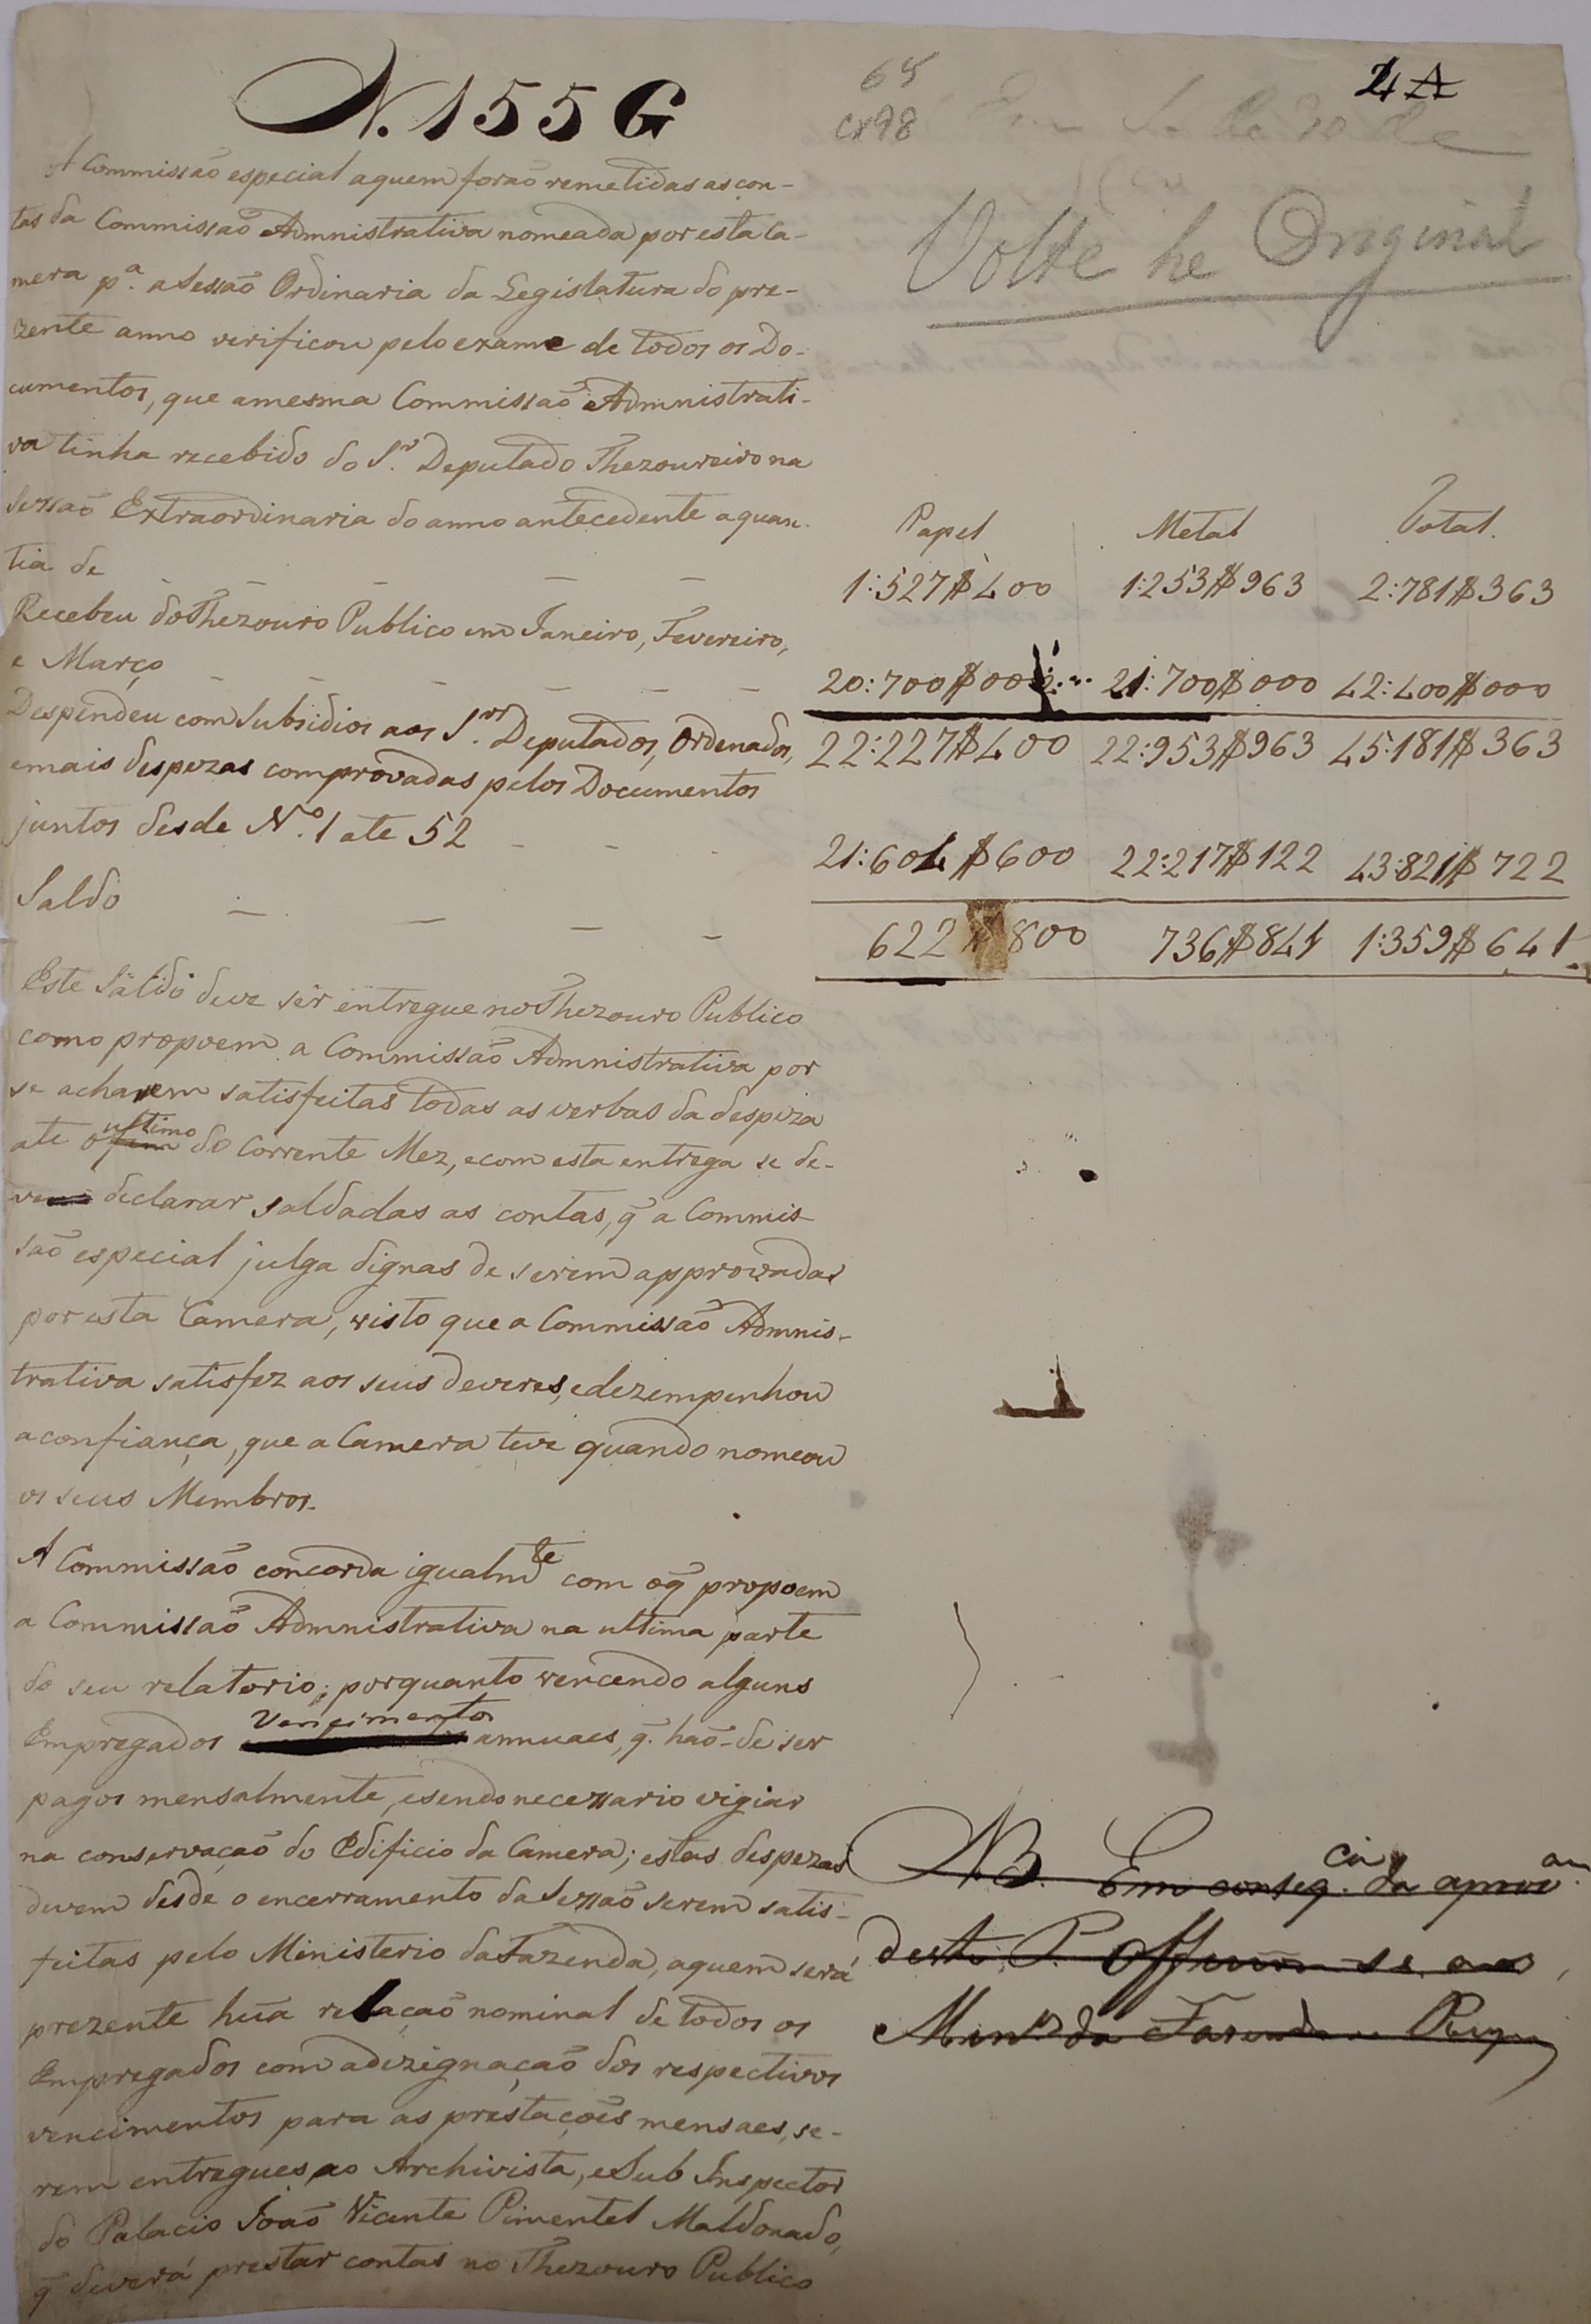 N. 155 G
65
cx98
4A
Volte he Original
A Commissaõ especial aquem foraõ remetidas as con-
tas da Commissaõ Admnistrativa nomeada por esta Ca-
mera pª. a Sessaõ Ordinaria da Legislatura do pre-
zente anno verificou pelo exame de todos os Do-
cumentos, que amesma Commissaõ Admnistrati-
va tinha recebido do Sr. Deputado Thezoureiro na
Sessaõ Extraordinaria do anno antecedente a quan-
tia de
Papel Metal Total.
1:527$400 1:253$963 2:781$363
Recebeu do Thezouro Publico em Janeiro, Fevereiro,
e Março
20:700$000 21:700$000 42:400$000
22:227$400 22:953$963 45:181$363
Despendeu com Subsidios aos Srs. Deputados, Ordenados,
e mais despezas comprovadas pelos Documentos
juntos desde Nº. 1 ate 52
21:604$600 22:217$122 43:821$722
Saldo
622$800 736$841 1:359$641
Este Saldo deve ser entregue no Thezouro Publico
como propoem a Commissaõ Admnistrativa por
se acharem satisfeitas todas as verbas da despeza
ate o ultimo do Corrente Mez, e com esta entrega se de-
vem declarar saldadas as contas, q̃ a Commis-
saõ especial julga dignas de serem approvadas
por esta Camera, visto que a Commissaõ Admnis-
trativa satisfez aos seus deveres, e dezempenhou
a confiança, que a Camera teve quando nomeou
os seus Membros.
A Commissaõ concorda igualmte com oq̃ propoem
a Commissaõ Admnistrativa na ultima parte
do seu relatorio; porquanto vencendo alguns
Empregados vencimentos annuaes, q̃. haõ-de ser
pagos mensalmente, e sendo necessario vigiar
na conservaçaõ do Edificio da Camera; estas despezas
devem desde o encerramento da Sessaõ serem satis-
feitas pelo Ministerio da Fazenda, aquem será
prezente huã relaçaõ nominal de todos os
Empregados com a dezignaçaõ dos respectivos
vencimentos para as prestaçoẽs mensaes, se-
rem entregues ao Archivista, e Sub Inspector
do Palacio Joaõ Vicente Pimentel Maldonado,
q̃ deverá prestar contas no Thezouro Publico
NB. Em conseq.cia da aprov.am
deste P. Officiou-se aos
Minros da Fazenda e Reyno